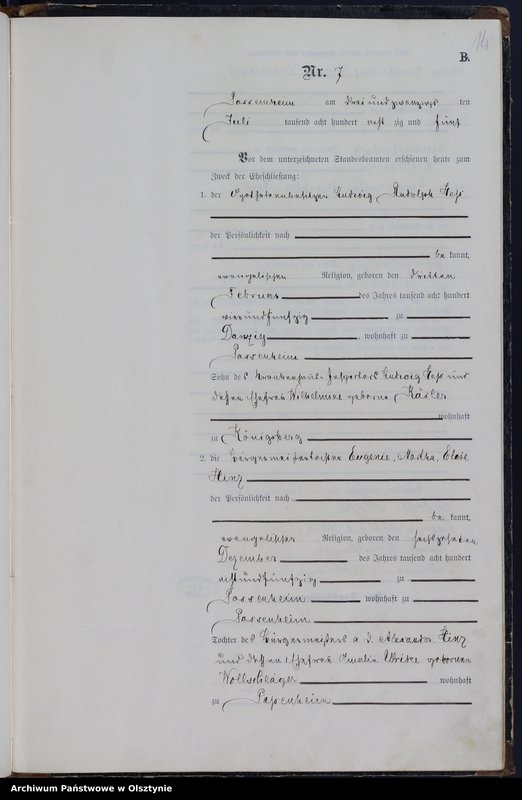 14
B.
Nr. 7
Passenheim am drei und zwanzigs ten
Juli tausend acht hundert acht zig und fünf
Vor dem unterzeichneten Standesbeamten erschienen heute zum
Zweck der Eheschließung:
1. der Apothekenbesitzer Ludwig Rudolph Heß
der Persönlichkeit nach
be kannt,
evangelischer Religion, geboren den dritten
Februar des Jahres tausend acht hundert
vierundfünfzig zu
Danzig, wohnhaft zu
Passenheim
Sohn des Krankenhaus-Inspectors Ludwig Heß und
dessen Ehefrau Wilhelmine geborne Käsler
wohnhaft
zu Königsberg
2. die Bürgermeistertochter Eugenie, Martha, Elise
Hinz
der Persönlichkeit nach
be kannt,
evangelischer Religion, geboren den sechszehnten
Dezember des Jahres tausend acht hundert
achtundfünfzig zu
Passenheim wohnhaft zu
Passenheim
Tochter des Bürgermeisters a. D. Alexander Hinz
und dessen Ehefrau Amalie Ulrike geborenen
Wollschläger wohnhaft
zu Passenheim
Archiwum Państwowe w Olsztynie